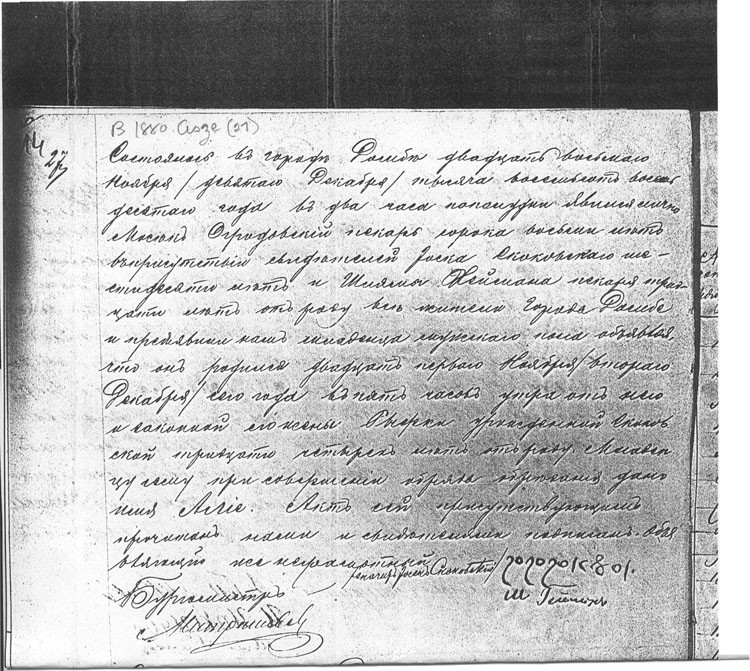 B 1880 (27)
14
27
Состоялось въ городѣ двадцать восьмаго
Ноября / девятаго Декабря / тысяча восемьсотъ восемь
десятаго года въ два часа пополудни явился лично
Мосекъ Огродовскій пекарь сорока восьми лѣтъ
въ присутствіи свидѣтелей Іоска Споковскаго ше-
стидесяти лѣтъ и Шлямы Неймана пекаря трид-
цати лѣтъ отъ роду всѣ жители города
и предъявили намъ младенца мужскаго пола объявляя,
что онъ родился двадцать перваго Ноября / втораго
Декабря / сего года въ пять часовъ утра отъ него
и законной его жены урожденной Споков
ской тридцати четырехъ лѣтъ отъ роду. Младен
цу сему при совершении обряда обрѣзанія дано
имя Актъ сей присутствующимъ
прочитанъ нами и свидѣтелями подписанъ. Объя
вляющій же неграмотный
Бургомистръ